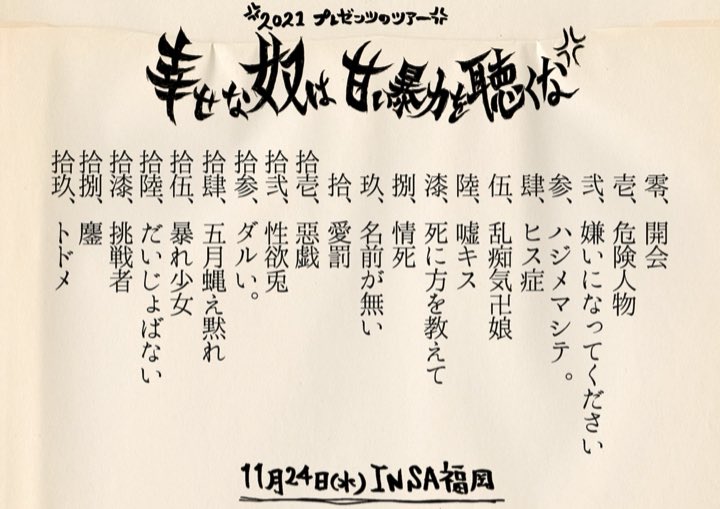 2021 プレゼンツのツアー
幸せな奴は甘い暴力を聴くな
零、開会
壱、危険人物
弐、嫌いになってください
参、ハジメマシテ。
肆、ヒス症
伍、乱痴気卍娘
陸、嘘キス
漆、死に方を教えて
捌、情死
玖、名前が無い
拾、愛罰
拾壱、惡戯
拾弐、性欲兎
拾参、ダルい。
拾肆、五月蝿え黙れ
拾伍、暴れ少女
拾陸、だいじょばない
拾漆、挑戦者
拾捌、鏖
拾玖、トドメ
11月24日(水) INSA福岡